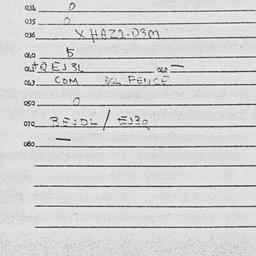 034 0
035 0
036 X HAZ2-03M
040 5
041 QEJ3L 042 —
043 COM FENCE
050 0
070 BEJDL / EJ3Q
080 —